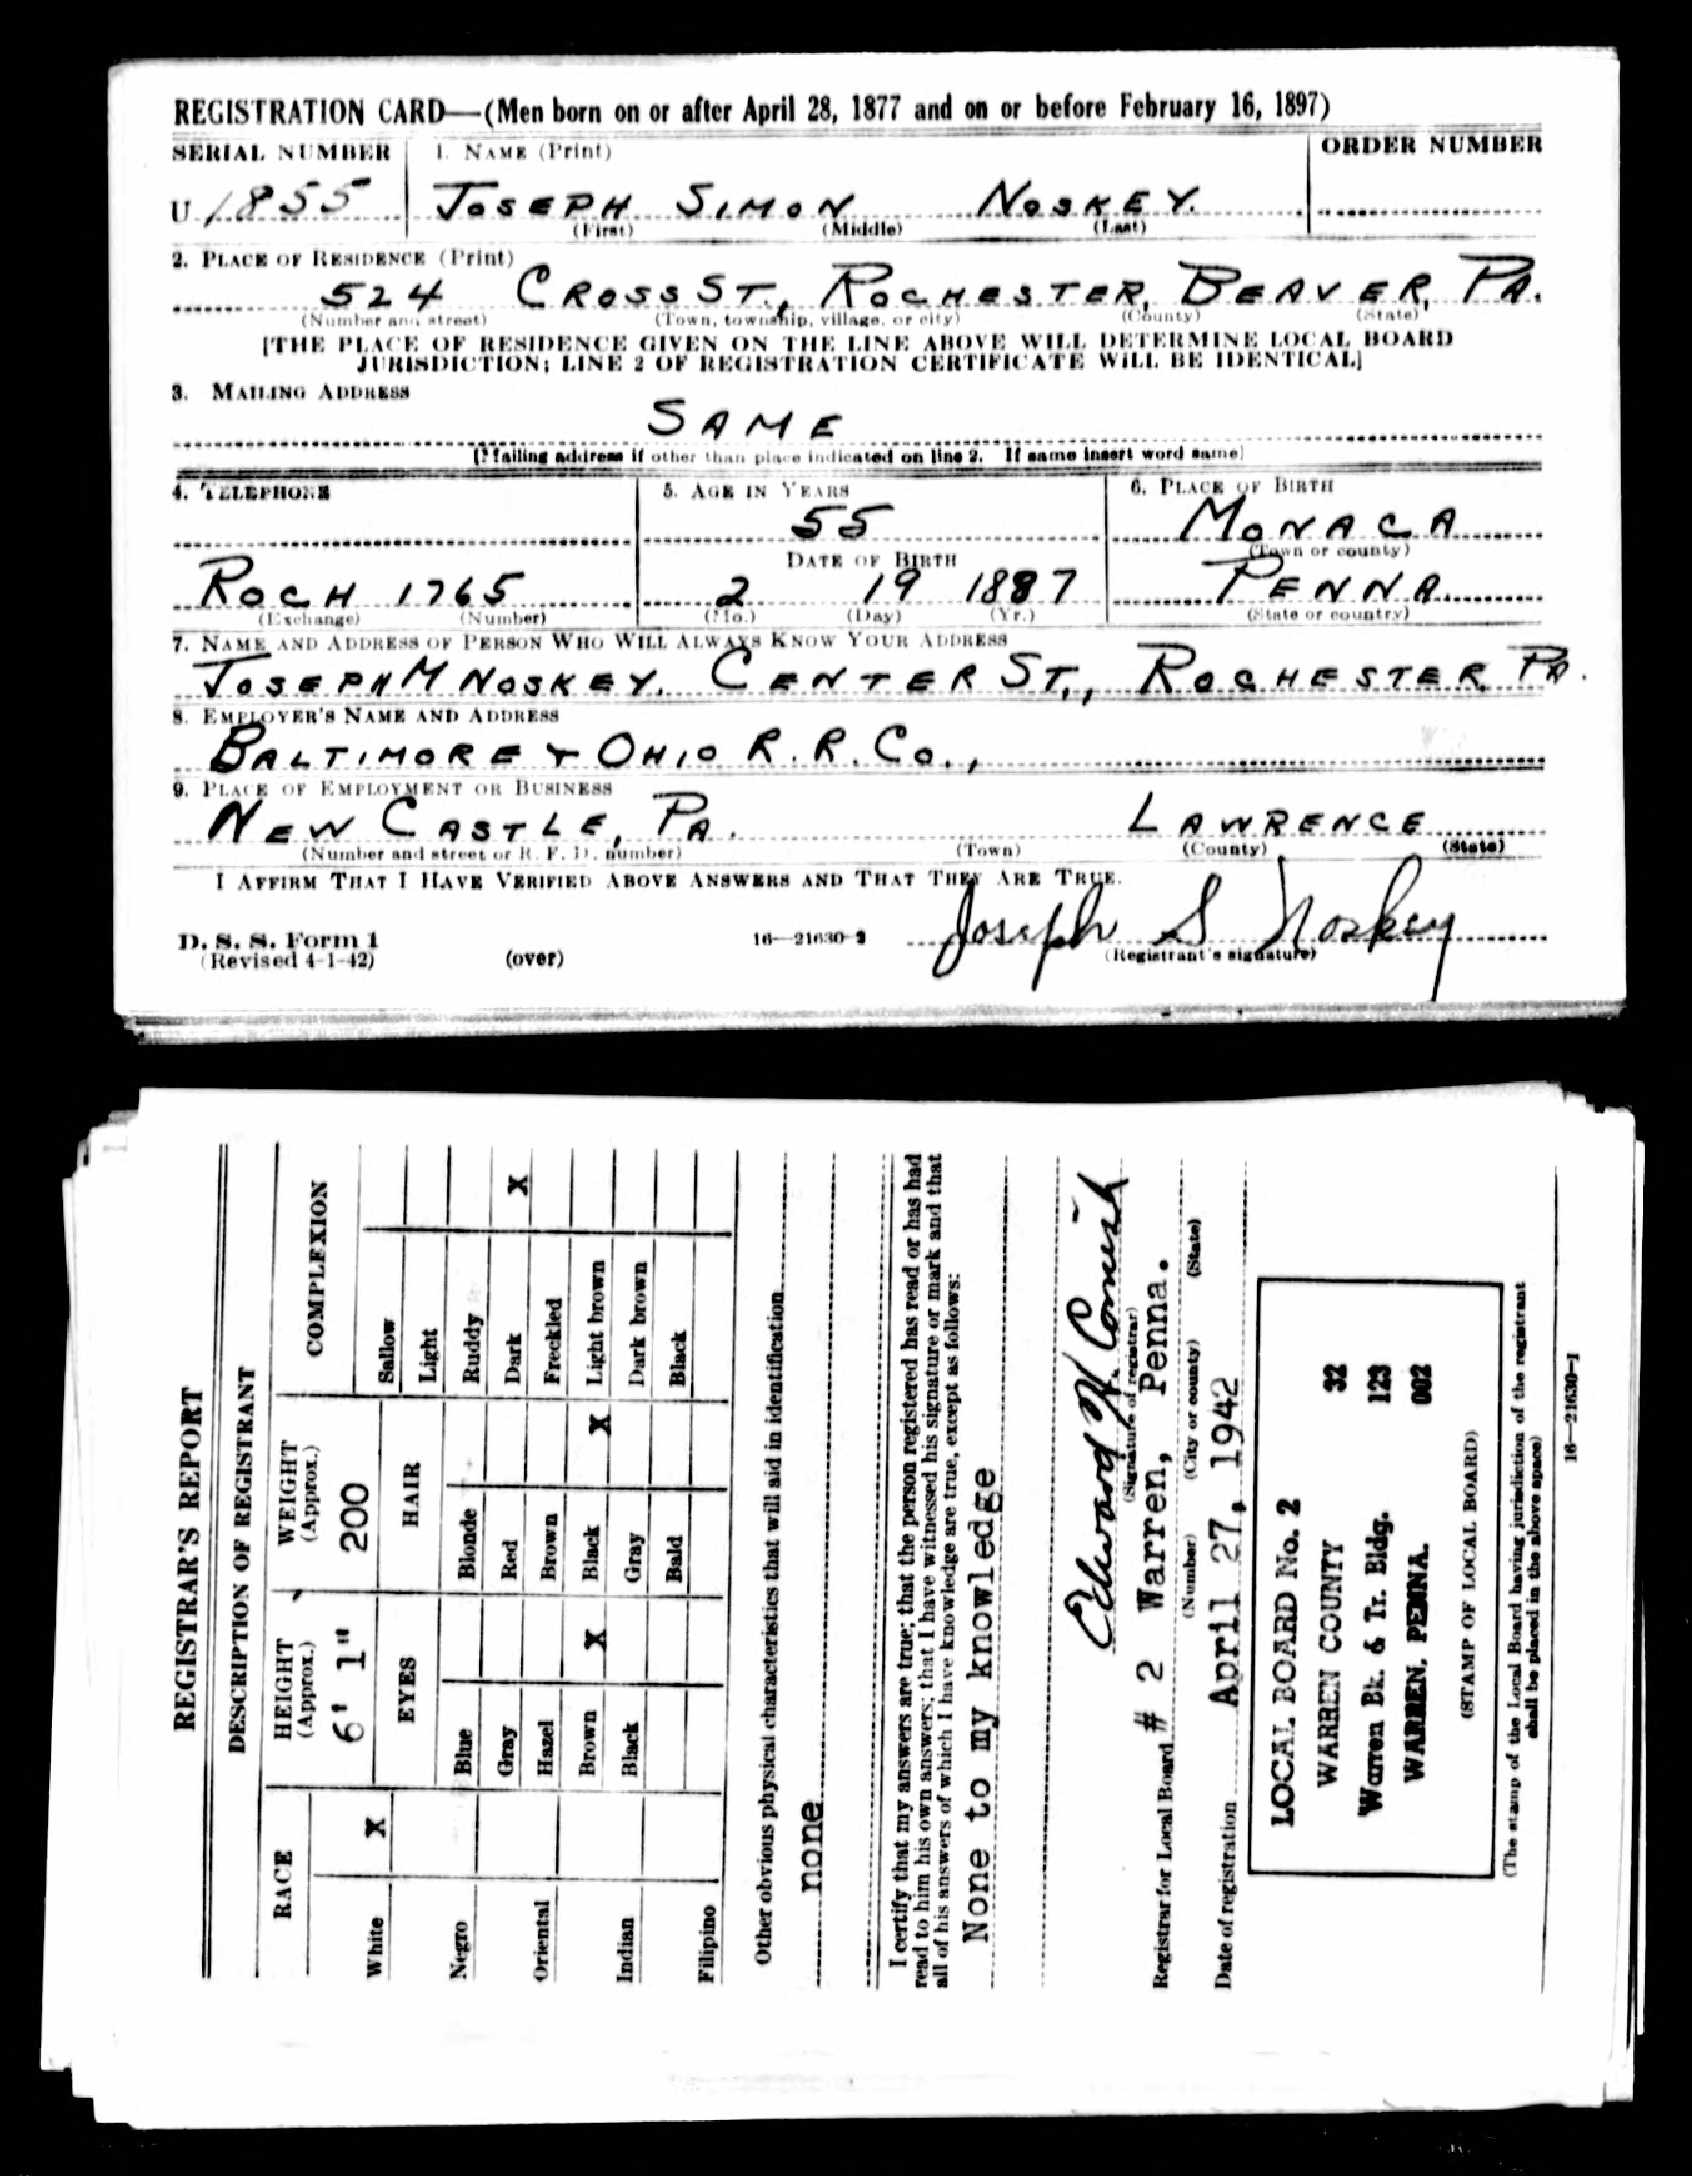 REGISTRATION CARD—(Men born on or after April 28, 1877 and on or before February 16, 1897)
SERIAL NUMBER 1. NAME (Print) ORDER NUMBER
U 1855 JOSEPH SIMON NOSKEY.
(First) (Middle) (Last)
2. PLACE OF RESIDENCE (Print)
524 CROSS ST., ROCHESTER, BEAVER, PA.
(Number and street) (Town, township, village, or city) (County) (State)
[THE PLACE OF RESIDENCE GIVEN ON THE LINE ABOVE WILL DETERMINE LOCAL BOARD
JURISDICTION; LINE 2 OF REGISTRATION CERTIFICATE WILL BE IDENTICAL]
3. MAILING ADDRESS
SAME
[Mailing address if other than place indicated on line 2. If same insert word same]
4. TELEPHONE 5. AGE IN YEARS 6. PLACE OF BIRTH
55 MONACA
DATE OF BIRTH (Town or county)
ROCH 1765 2 19 1887 PENNA
(Exchange) (Number) (Mo.) (Day) (Yr.) (State or country)
7. NAME AND ADDRESS OF PERSON WHO WILL ALWAYS KNOW YOUR ADDRESS
JOSEPH M NOSKEY. CENTER ST., ROCHESTER, PA.
8. EMPLOYER'S NAME AND ADDRESS
BALTIMORE & OHIO R.R. CO.,
9. PLACE OF EMPLOYMENT OR BUSINESS
NEW CASTLE, PA. LAWRENCE
(Number and street or R. F. D. number) (Town) (County) (State)
I AFFIRM THAT I HAVE VERIFIED ABOVE ANSWERS AND THAT THEY ARE TRUE.
D. S. S. Form 1
(Revised 4-1-42) (over) 16—21630-2 Joseph S Noskey
(Registrant's signature)
REGISTRAR'S REPORT
DESCRIPTION OF REGISTRANT
RACE HEIGHT (Approx.) WEIGHT (Approx.) COMPLEXION
6' 1" 200
White X EYES HAIR Sallow
Light
Negro Blue Blonde Ruddy
Gray Red Dark X
Oriental Hazel Brown Freckled
Brown X Black X Light brown
Indian Black Gray Dark brown
Filipino Bald Black
Other obvious physical characteristics that will aid in identification
none
I certify that my answers are true; that the person registered has read or has had
read to him his own answers; that I have witnessed his signature or mark and that
all of his answers of which I have knowledge are true, except as follows:
None to my knowledge
Edward H.
(Signature of registrar)
Registrar for Local Board # 2 Warren, Penna.
(Number) (City or county) (State)
Date of registration April 27, 1942
LOCAL BOARD No. 2
WARREN COUNTY 32
Warren Bk. & Tr. Bldg. 123
WARREN, PENNA. 002
(STAMP OF LOCAL BOARD)
(The stamp of the Local Board having jurisdiction of the registrant
shall be placed in the above space)
16—21630-1